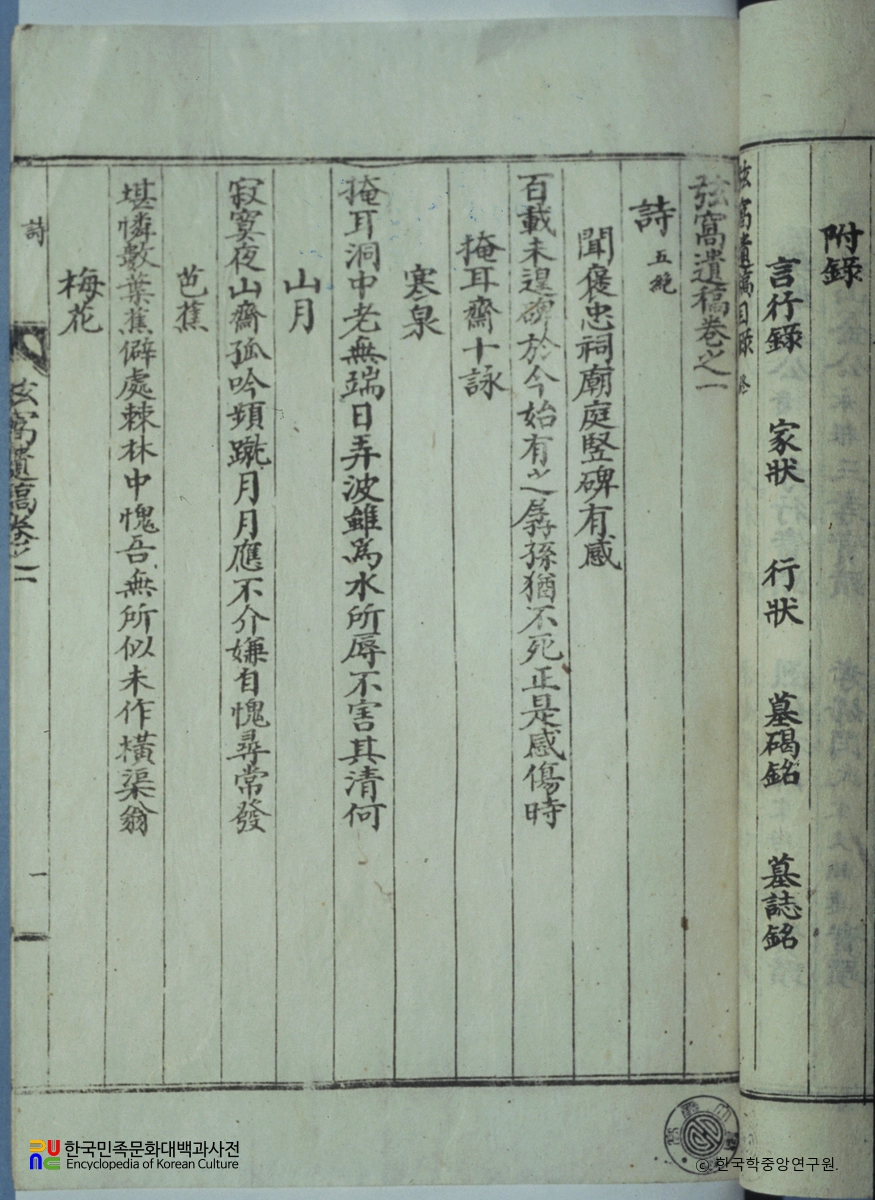 附錄
言行錄 家狀 行狀 墓碣銘 墓誌銘
弦窩遺稿目錄 終
弦窩遺稿卷之一
詩 五絶
聞褒忠祠廟庭竪碑有感
百載未遑碑於今始有之孱孫猶不死正是感傷時
掩耳齋十詠
寒泉
掩耳洞中老無端日弄波雖爲水所辱不害其清何
山月
寂寞夜山齋孤吟頻蹴月月應不介嫌自愧尋常發
芭蕉
堪憐數葉蕉僻處棘林中愧吾無所似未作橫渠翁
梅花
詩
弦窩遺稿卷之一
一
한국민족문화대백과사전
Encyclopedia of Korean Culture
© 한국학중앙연구원.